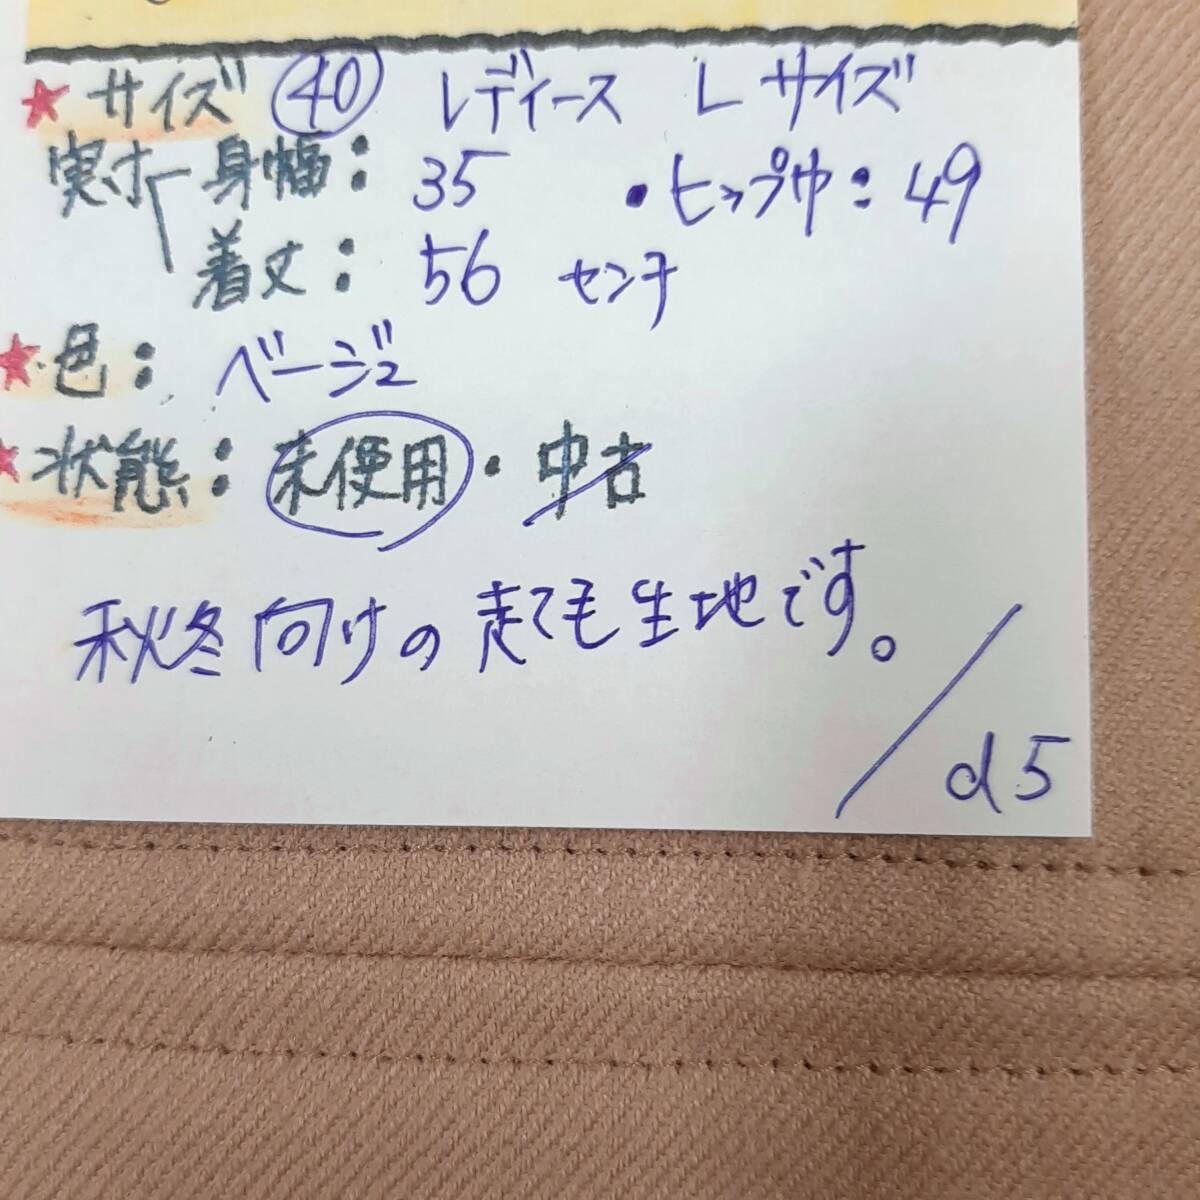 ★サイズ ㊵ レディース Lサイズ
実寸 身幅: 35 ・ヒップ巾: 49
着丈: 56 センチ
★色: ベージュ
★状態: 未使用・中古
秋冬向けの走ても生地です。
d5